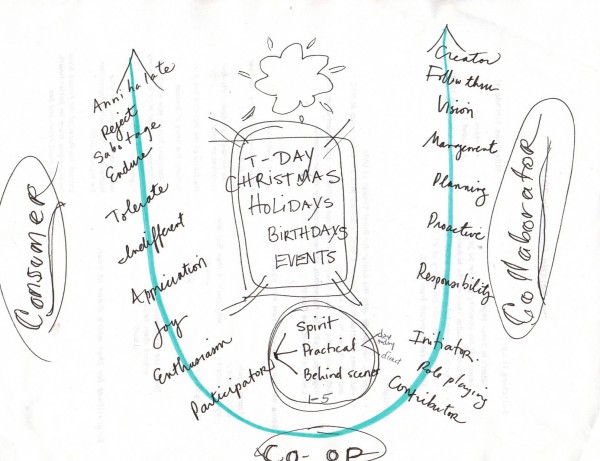 Annihalate
Reject
Sabotage
Endure
Tolerate
Indifferent
Appriciation
Joy
Enthusiasm
Participator
Consumer
T-DAY
CHRISTMAS
HOLIDAYS
BIRTHDAYS
EVENTS
Spirit
Practical
Behind scenes
1-5
direct
CO-OP
Creator
Follow thru
Vision
Management
Planning
Proactive
Responsibility
Initiator.
Role playing
Contributor
Collaborator